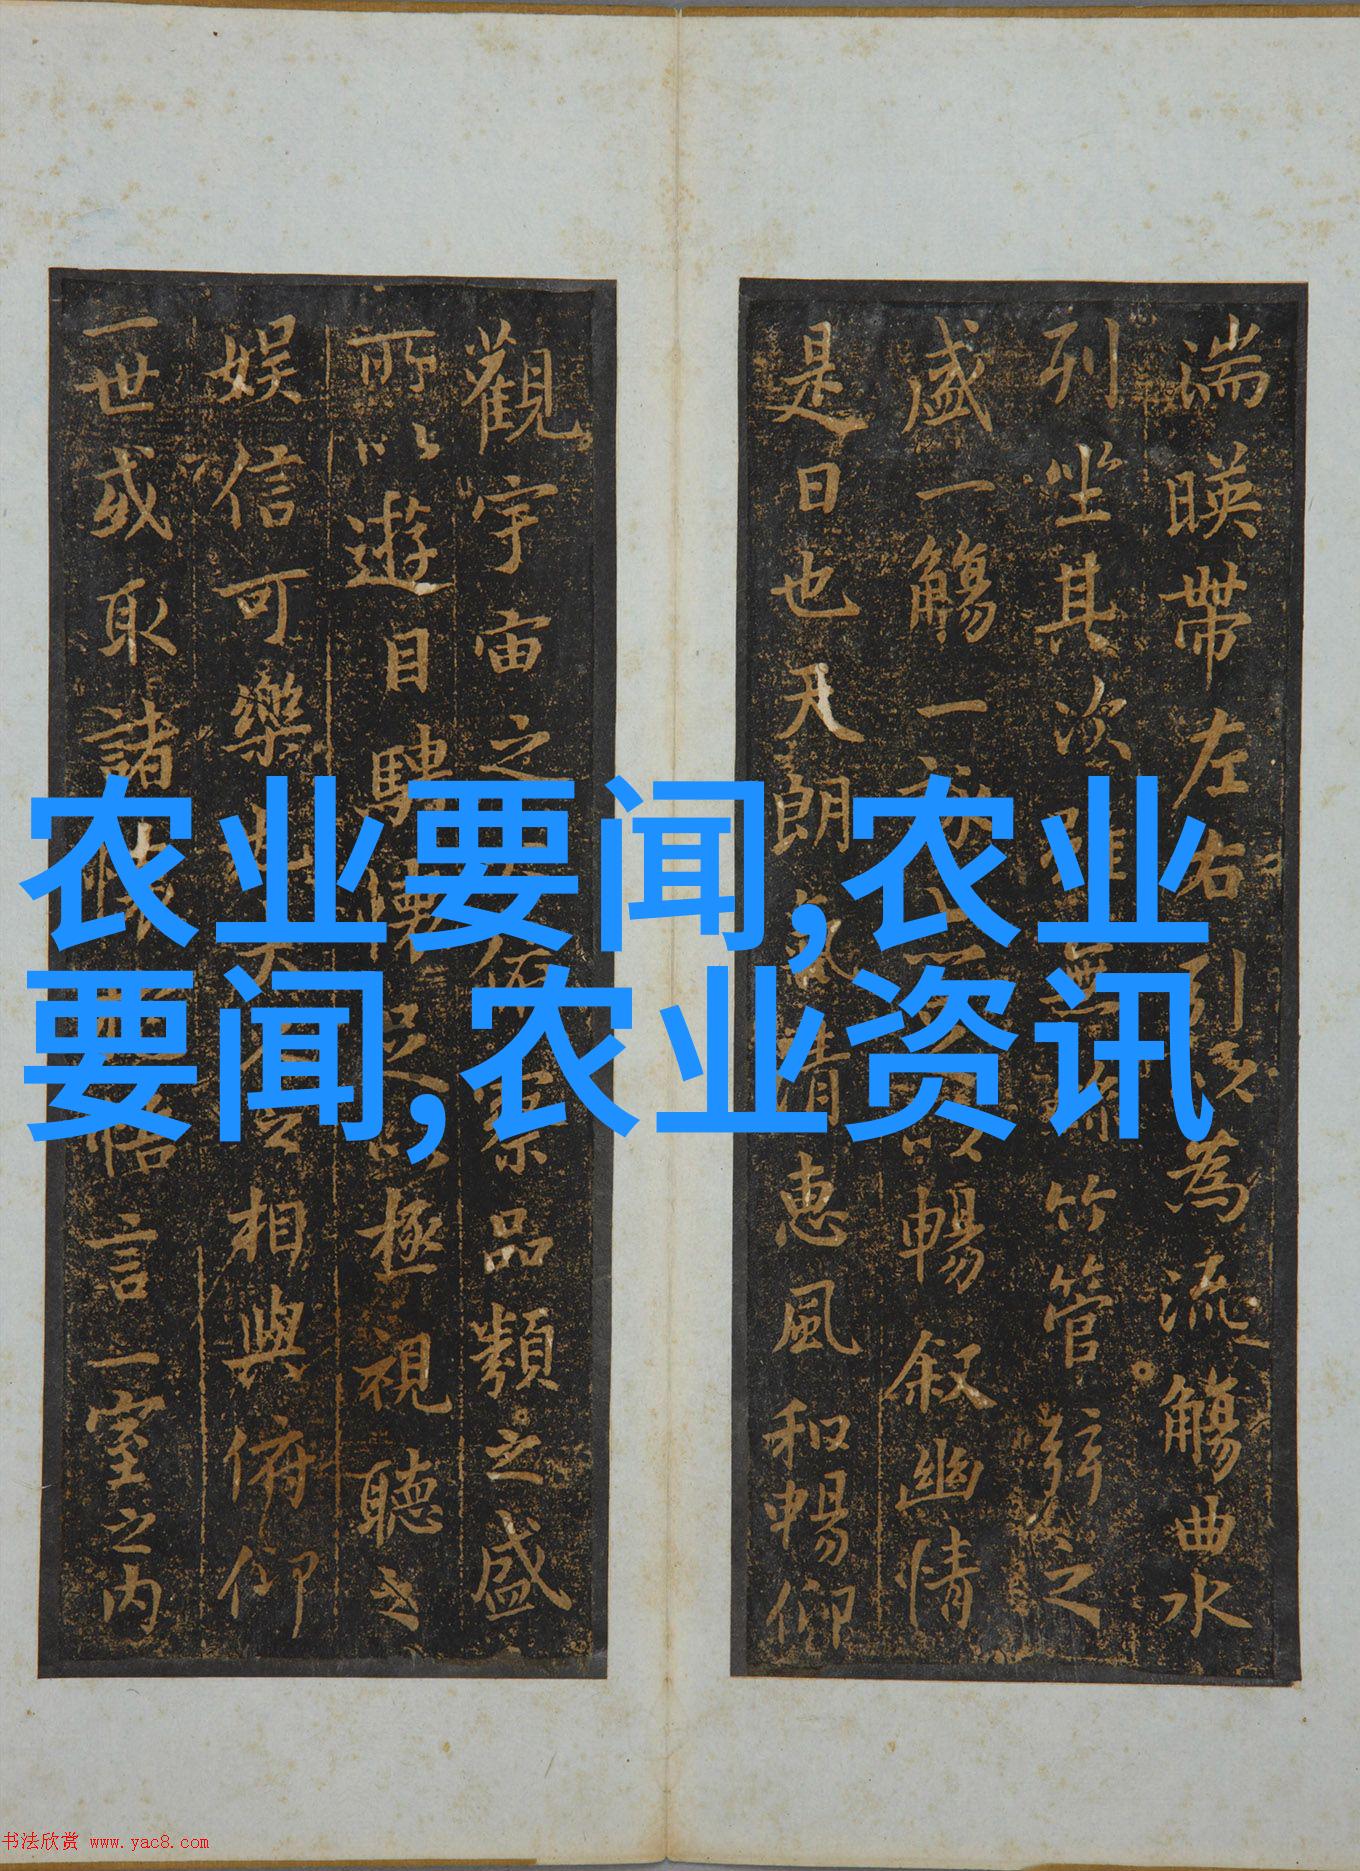 湍暎帶左右引以為流觴曲水
列坐其次雖無絲竹管弦之
盛一觴一詠以暢叙幽情
是日也天朗氣清惠風和暢仰
觀宇宙之俯察品類之盛
所以遊目騁懷足以極視聽之
娱信可樂也夫相與俯仰
一世或取諸悟言一室之內
农业要闻,农业
要闻,农业资讯
书法欣赏 www.yac8.com